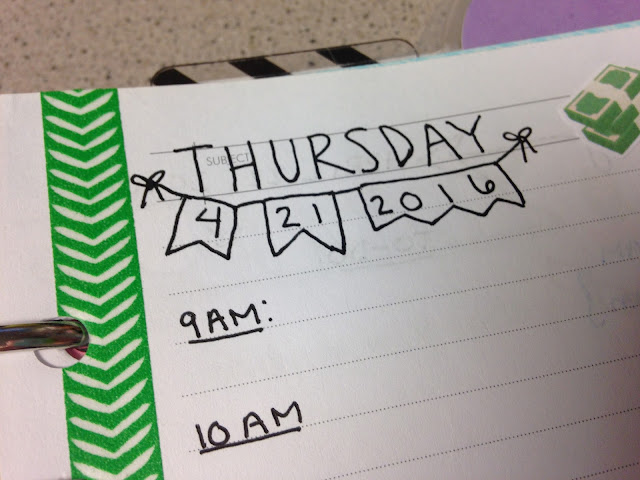 SUBJECT
THURSDAY
4 21 2016
9AM:
10 AM